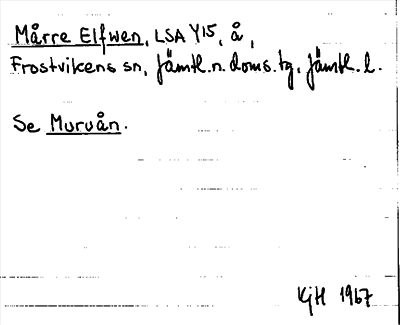 Mårre Elfwen, LSA Y15, å,
Frostvikens sn, Jämtl. n. doms. tg, Jämtl. l.
Se Muruån.
KjH 1967